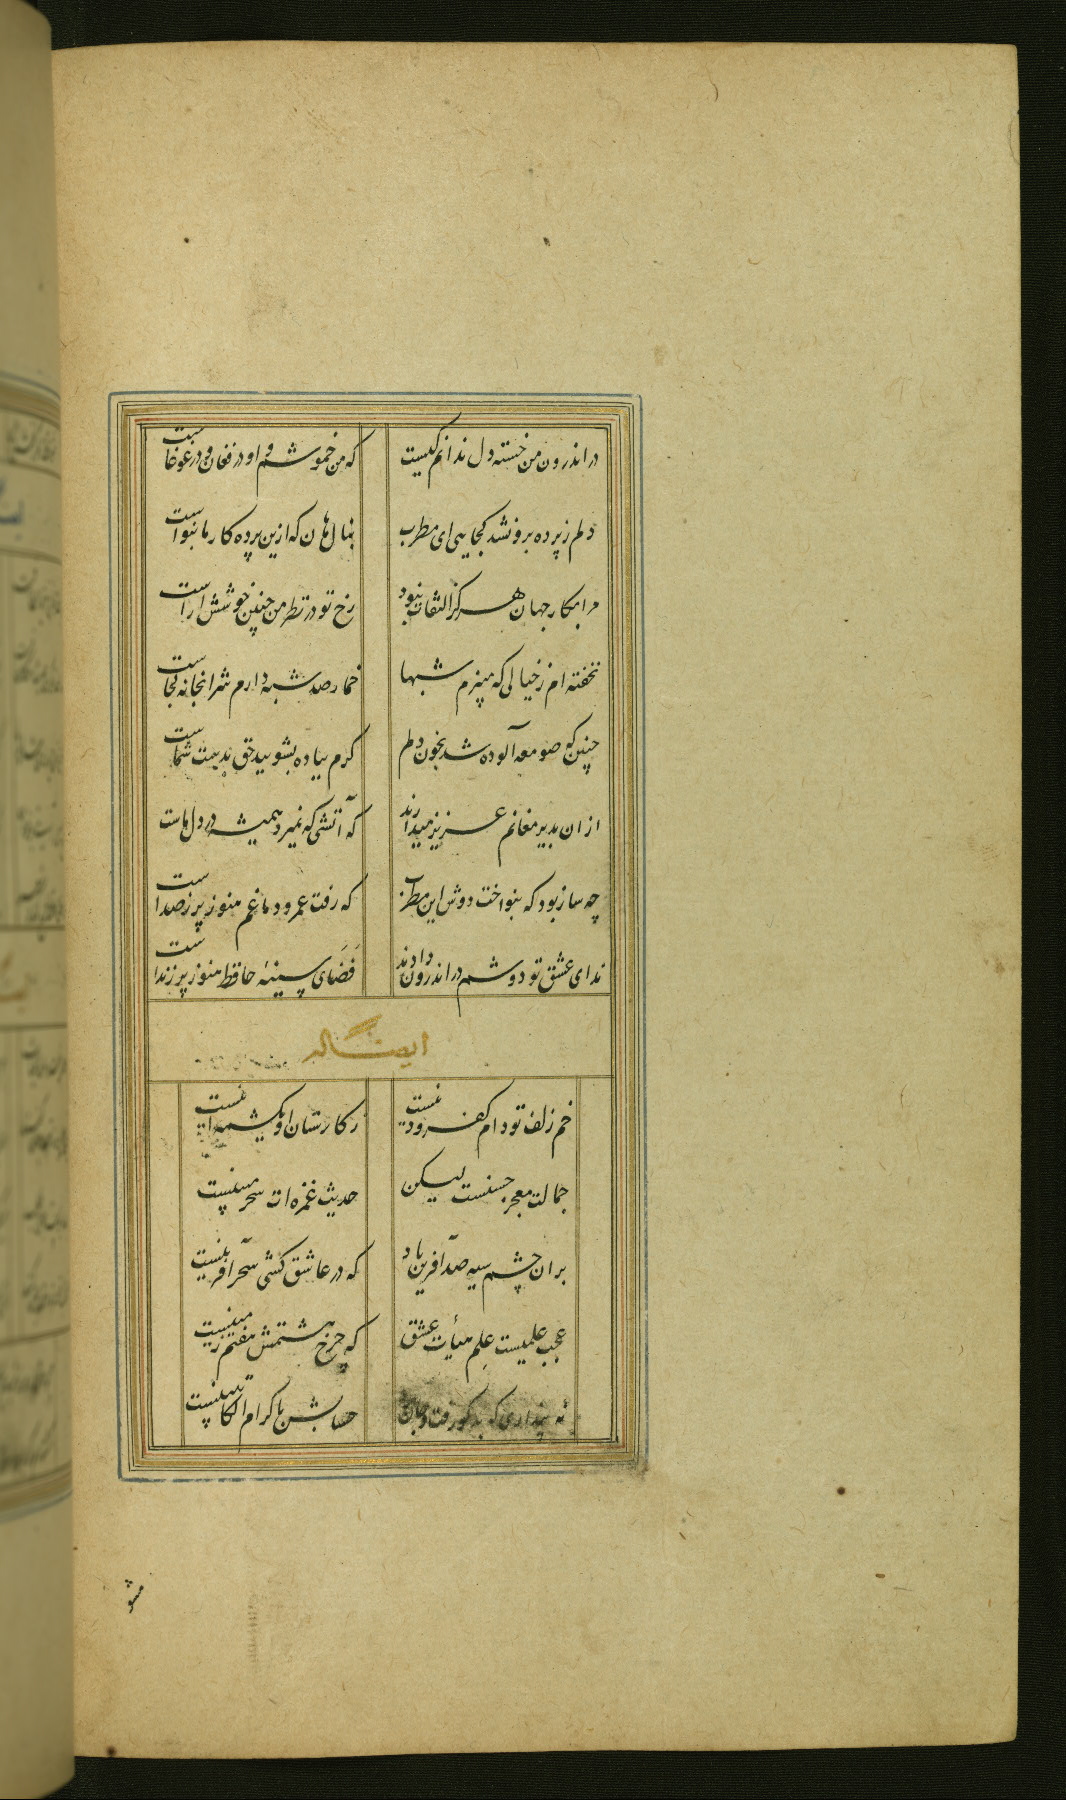 در اندرون من خسته دل ندانم کیست
که من خموشم و او در فغان و در غوغاست
دلم ز پرده برون شد کجایی ای مطرب
بنال هان که ازین پرده کار ما بنواست
مرا بکار جهان هرگز التفات نبود
رخ تو در نظر من چنین خوشش اراست
نخفته ام ز خیالی که میپزم شبها
خمار صد شبه دارم شرابخانه کجاست
چنین که صومعه آلوده شد بخون دلم
کرم بباده بشویید حق بدست شماست
ازان بدیر مغانم عزیز میدارند
که آتشی که نمیرد همیشه در دل ماست
چه ساز بود که بنواخت دوش این مطرب
که رفت عمر و دماغم هنوز پر ز صداست
ندای عشق تو دوشم در اندرون دادند
فضای سینهٔ حافظ هنوز پر ز نداست
ایضا له
خم زلف تو دام کفر و دینست
ز کارستان او یک شمه اینست
جمالت معجز حسنست لیکن
حدیث غمزه ات سحر مبینست
بران چشم سیه صد آفرین باد
که در عاشق کشی سحر آفرینست
عجب علمیست علم هیأت عشق
که چرخ هشتمش هفتم زمینست
نه پنداری که بدگو رفت و جان برد
حسابش با کرام الکاتبینست
مشو